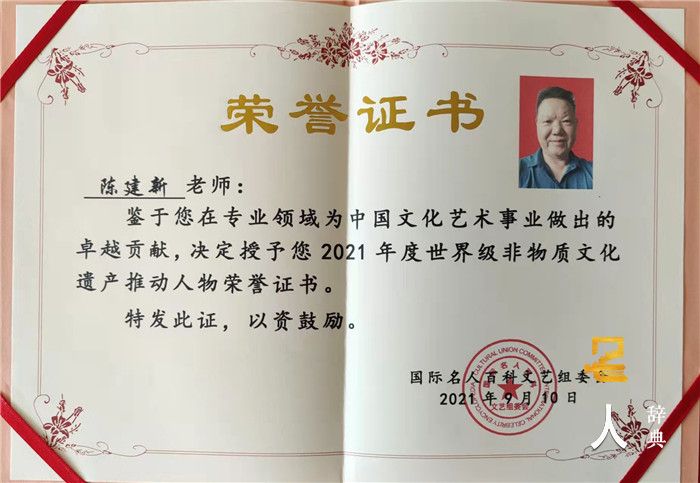 荣誉证书
陈建新 老师：
鉴于您在专业领域为中国文化艺术事业做出的
卓越贡献，决定授予您2021年度世界级非物质文化
遗产推动人物荣誉证书。
特发此证，以资鼓励。
国际名人百科文艺组委会
2021年9月10日
CULTURAL UNION COMMITTEE INTERNATIONAL CELEBRITY ENCYCLOPEDIA
国际名人百科
文艺组委会
名
人
辞典